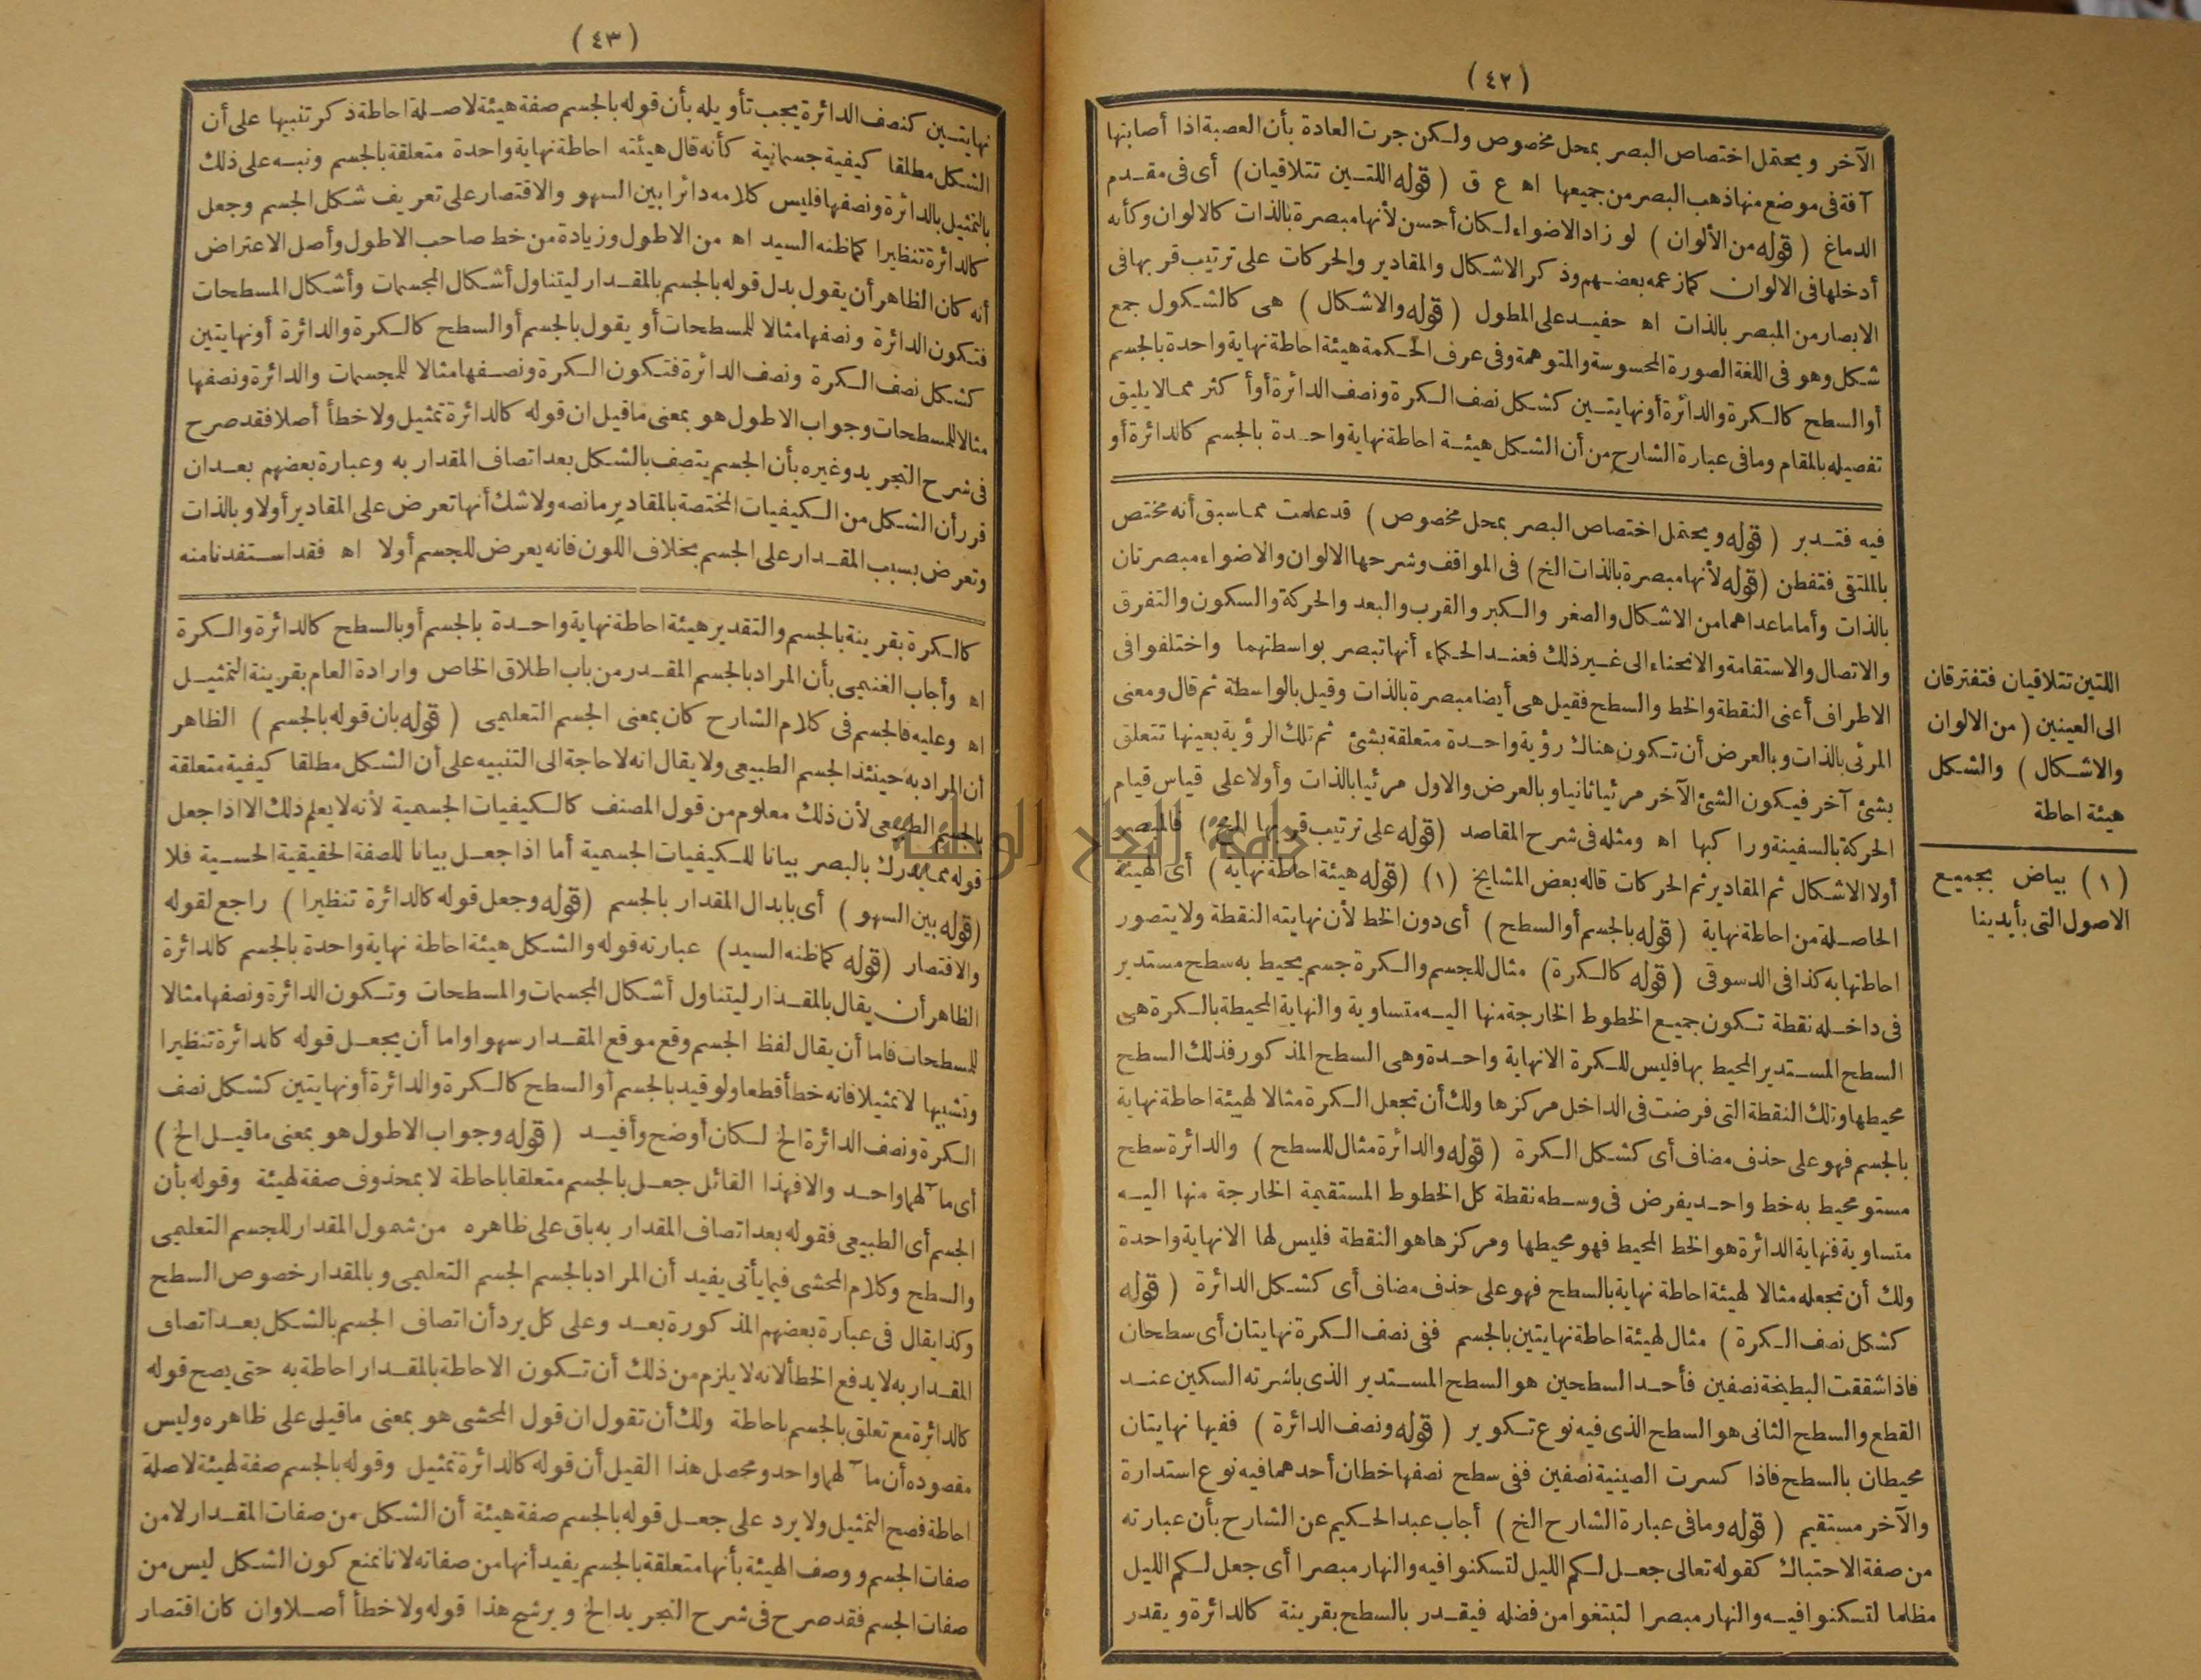 (٤٢)
الآخر ويحتمل اختصاص البصر بمحل مخصوص ولكن جرت العادة بأن العصبة اذا أصابتها
آفة فى موضع منها ذهب البصر من جميعها اه ع ق (قوله اللتين تتلاقيان) أى فى مقدم
الدماغ (قوله من الألوان) لو زاد الاضواء لكان أحسن لأنها مبصرة بالذات كالالوان وكأنه
أدخلها فى الالوان كما زعمه بعضهم وذكر الاشكال والمقادير والحركات على ترتيب قربها فى
الابصار من المبصر بالذات اه حفيد على المطول (قوله والاشكال) هى كالشكول جمع
شكل وهو فى اللغة الصورة المحسوسة والمتوهمة وفى عرف الحكمة هيئة احاطة نهاية واحدة بالجسم
أو السطح كالكرة والدائرة أو نهايتين كشكل نصف الكرة ونصف الدائرة أو أكثر مما لا يليق
تفصيله بالمقام وما فى عبارة الشارح من أن الشكل هيئة احاطة نهاية واحدة بالجسم كالدائرة أو
فيه فتدبر (قوله ويحتمل اختصاص البصر بمحل مخصوص) قد علمت مما سبق أنه مختص
بالملتقى فتفطن (قوله لأنها مبصرة بالذات الخ) فى المواقف وشرحها الالوان والاضواء مبصرتان
بالذات وأما ما عداهما من الاشكال والصغر والكبر والقرب والبعد والحركة والسكون والتفرق
والاتصال والاستقامة والانحناء الى غير ذلك فعند الحكماء أنها تبصر بواسطتهما واختلفوا فى
الاطراف أعنى النقطة والخط والسطح فقيل هى أيضا مبصرة بالذات وقيل بالواسطة ثم قال ومعنى
المرئى بالذات وبالعرض أن تكون هناك رؤية واحدة متعلقة بشئ ثم تلك الرؤية بعينها تتعلق
بشئ آخر فيكون الشئ الآخر مرئيا ثانيا وبالعرض والاول مرئيا بالذات وأولا على قياس قيام
الحركة بالسفينة وراكبها اه ومثله فى شرح المقاصد (قوله على ترتيب قربها الخ) فالمبصر
أولا الاشكال ثم المقادير ثم الحركات قاله بعض المشايخ (١) (قوله هيئة احاطة نهاية) أى الهيئة
الحاصلة من احاطة نهاية (قوله بالجسم أو السطح) أى دون الخط لأن نهايته النقطة ولا يتصور
احاطتها به كذا فى الدسوقى (قوله كالكرة) مثال للجسم والكرة جسم يحيط به سطح مستدير
فى داخله نقطة تكون جميع الخطوط الخارجة منها اليه متساوية والنهاية المحيطة بالكرة هى
السطح المستدير المحيط بها فليس للكرة الا نهاية واحدة وهى السطح المذكور فذلك السطح
محيطها وتلك النقطة التى فرضت فى الداخل مركزها ولك أن تجعل الكرة مثالا لهيئة احاطة نهاية
بالجسم فهو على حذف مضاف أى كشكل الكرة (قوله والدائرة مثال للسطح) والدائرة سطح
مستو محيط به خط واحد يفرض فى وسطه نقطة كل الخطوط المستقيمة الخارجة منها اليه
متساوية فنهاية الدائرة هو الخط المحيط فهو محيطها ومركزها هو النقطة فليس لها الا نهاية واحدة
ولك أن تجعله مثالا لهيئة احاطة نهاية بالسطح فهو على حذف مضاف أى كشكل الدائرة (قوله
كشكل نصف الكرة) مثال لهيئة احاطة نهايتين بالجسم ففى نصف الكرة نهايتان أى سطحان
فاذا شققت البطيخة نصفين فأحد السطحين هو السطح المستدير الذى باشرته السكين عند
القطع والسطح الثانى هو السطح الذى فيه نوع تكوير (قوله ونصف الدائرة) ففيها نهايتان
محيطان بالسطح فاذا كسرت الصينية نصفين ففى سطح نصفها خطان أحدهما فيه نوع استدارة
والآخر مستقيم (قوله وما فى عبارة الشارح الخ) أجاب عبد الحكيم عن الشارح بأن عبارته
من صفة الاحتباك كقوله تعالى جعل لكم الليل لتسكنوا فيه والنهار مبصرا أى جعل لكم الليل
مظلما لتسكنوا فيه والنهار مبصرا لتبتغوا من فضله فيقدر بالسطح بقرينة كالدائرة ويقدر
اللتين تتلاقيان فتفترقان
الى العينين (من الالوان
والاشكال) والشكل
هيئة احاطة
(١) بياض بجميع
الاصول التى بأيدينا
(٤٣)
نهايتين كنصف الدائرة يجب تأويله بأن قوله بالجسم صفة هيئة لا صلة احاطة ذكر تنبيها على أن
الشكل مطلقا كيفية جسمانية كأنه قال هيئته احاطة نهاية واحدة متعلقة بالجسم ونبه على ذلك
بالتمثيل بالدائرة ونصفها فليس كلامه دائرا بين السهو والاقتصار على تعريف شكل الجسم وجعل
كالدائرة تنظيرا كما ظنه السيد اه من الاطول وزيادة من خط صاحب الاطول وأصل الاعتراض
أنه كان الظاهر أن يقول بدل قوله بالجسم بالمقدار ليتناول أشكال المجسمات وأشكال المسطحات
فتكون الدائرة ونصفها مثالا للمسطحات أو يقول بالجسم أو السطح كالكرة والدائرة أو نهايتين
كشكل نصف الكرة ونصف الدائرة فتكون الكرة ونصفها مثالا للمجسمات والدائرة ونصفها
مثالا للمسطحات وجواب الاطول هو بمعنى ما قيل ان قوله كالدائرة تمثيل ولا خطأ أصلا فقد صرح
فى شرح التجريد وغيره بأن الجسم يتصف بالشكل بعد اتصاف المقدار به وعبارة بعضهم بعد ان
قرر أن الشكل من الكيفيات المختصة بالمقادير ما نصه ولا شك أنها تعرض على المقادير أولا وبالذات
وتعرض بسبب المقدار على الجسم بخلاف اللون فانه يعرض للجسم أولا اه فقد استفدنا منه
كالكرة بقرينة بالجسم والتقدير هيئة احاطة نهاية واحدة بالجسم أو بالسطح كالدائرة والكرة
اه وأجاب الغنيمى بأن المراد بالجسم المقدر من باب اطلاق الخاص وارادة العام بقرينة التمثيل
اه وعليه فالجسم فى كلام الشارح كان بمعنى الجسم التعليمى (قوله بان قوله بالجسم) الظاهر
أن المراد به حينئذ الجسم الطبيعى ولا يقال انه لا حاجة الى التنبيه على أن الشكل مطلقا كيفية متعلقة
بالجسم الطبيعى لأن ذلك معلوم من قول المصنف كالكيفيات الجسمية لأنه لا يعلم ذلك الا اذا جعل
قوله مما يدرك بالبصر بيانا للكيفيات الجسمية أما اذا جعل بيانا للصفة الحقيقية الحسية فلا
(قوله بين السهو) أى بابدال المقدار بالجسم (قوله وجعل قوله كالدائرة تنظيرا) راجع لقوله
والاقتصار (قوله كما ظنه السيد) عبارته قوله والشكل هيئة احاطة نهاية واحدة بالجسم كالدائرة
الظاهر أن يقال بالمقدار ليتناول أشكال المجسمات والمسطحات وتكون الدائرة ونصفها مثالا
للمسطحات فاما أن يقال لفظ الجسم وقع موقع المقدار سهوا واما أن يجعل قوله كالدائرة تنظيرا
وتشبيها لا تمثيلا فانه خطأ قطعا ولو قيد بالجسم أو السطح كالكرة والدائرة أو نهايتين كشكل نصف
الكرة ونصف الدائرة الخ لكان أوضح وأفيد (قوله وجواب الاطول هو بمعنى ما قيل الخ)
أى مآلهما واحد والا فهذا القائل جعل بالجسم متعلقا باحاطة لا بمحذوف صفة لهيئة وقوله بأن
الجسم أى الطبيعى فقوله بعد اتصاف المقدار به باق على ظاهره من شمول المقدار للجسم التعليمى
والسطح وكلام المحشى فيما يأتى يفيد أن المراد بالجسم الجسم التعليمى وبالمقدار خصوص السطح
وكذا يقال فى عبارة بعضهم المذكورة بعد وعلى كل يرد أن اتصاف الجسم بالشكل بعد اتصاف
المقدار به لا يدفع الخطأ لانه لا يلزم من ذلك أن تكون الاحاطة بالمقدار احاطة به حتى يصح قوله
كالدائرة مع تعلق بالجسم باحاطة ولك أن تقول ان قول المحشى هو بمعنى ما قيل على ظاهره وليس
مقصوده أن مآلهما واحد ومحصل هذا القيل أن قوله كالدائرة تمثيل وقوله بالجسم صفة لهيئة لا صلة
احاطة فصح التمثيل ولا يرد على جعل قوله بالجسم صفة هيئة أن الشكل من صفات المقدار لا من
صفات الجسم ووصف الهيئة بأنها متعلقة بالجسم يفيد أنها من صفاته لانا نمنع كون الشكل ليس من
صفات الجسم فقد صرح فى شرح التجريد الخ ويرشح هذا قوله ولا خطأ أصلا وان كان اقتصار
جامعة النجاح الوطنية